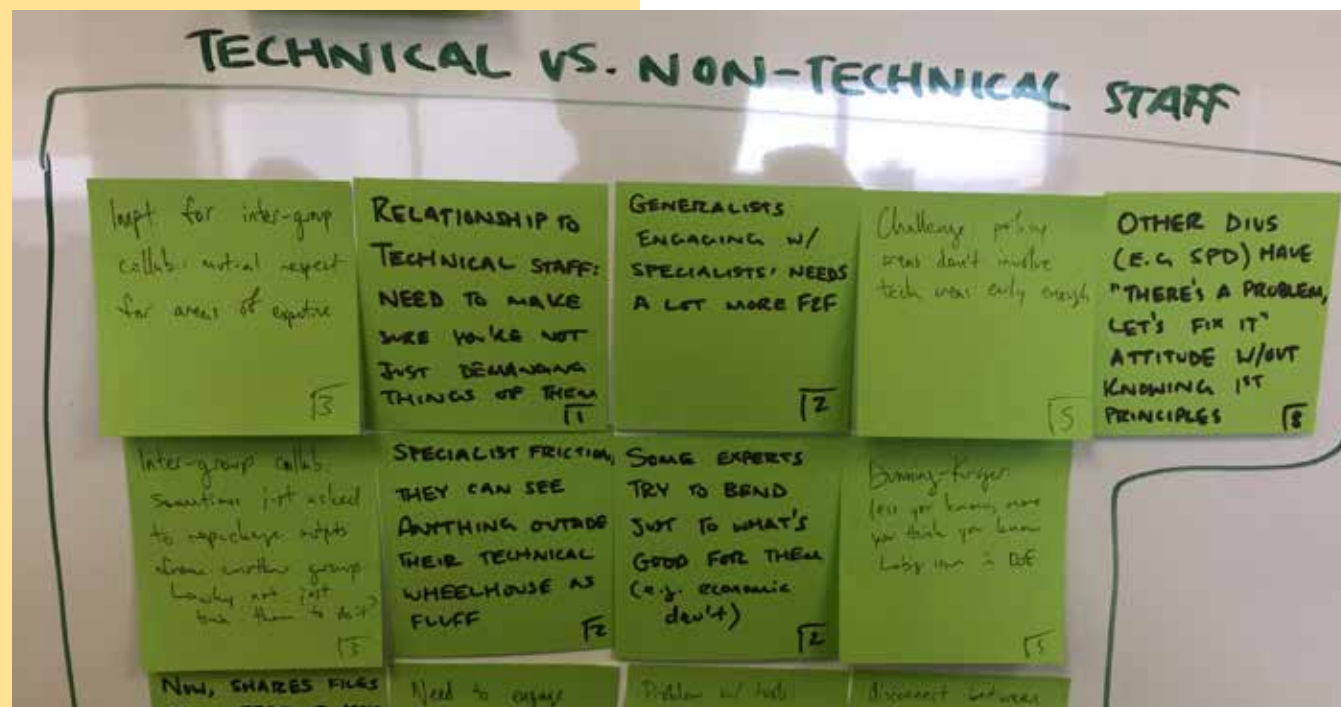 TECHNICAL VS. NON-TECHNICAL STAFF
Impt for inter-group
collab: mutual respect
for areas of expertise
3
RELATIONSHIP TO
TECHNICAL STAFF:
NEED TO MAKE
SURE YOU'RE NOT
JUST DEMANDING
THINGS OF THEM
1
GENERALISTS
ENGAGING W/
SPECIALISTS' NEEDS
A LOT MORE F2F
2
Challenge policy
areas don't involve
tech areas early enough
5
OTHER DIVS
(E.G SPD) HAVE
"THERE'S A PROBLEM,
LET'S FIX IT"
ATTITUDE W/OUT
KNOWING 1ST
PRINCIPLES
8
Inter-group collab:
sometimes just asked
to repackage outputs
from another group
why not just
them to do it?
3
SPECIALIST FRICTION,
THEY CAN SEE
ANYTHING OUTSIDE
THEIR TECHNICAL
WHEELHOUSE AS
FLUFF
2
SOME EXPERTS
TRY TO BEND
JUST TO WHAT'S
GOOD FOR THEM
(e.g. economic
dev't)
2
less you know, more
you think you know
5
NOW, SHARES FILES
Need to engage
Problem w/ tools
disconnect between